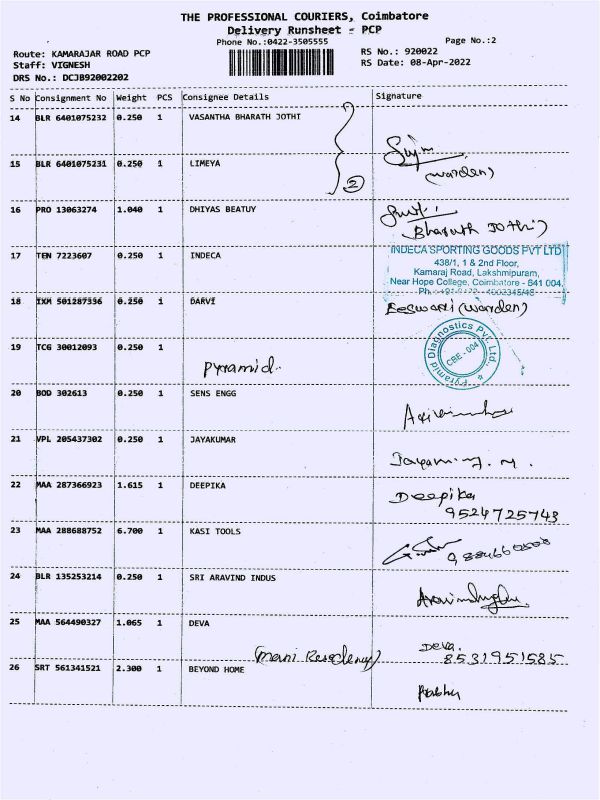 THE PROFESSIONAL COURIERS, Coimbatore
Delivery Runsheet - PCP
Phone No.:0422-3505555
Page No.:2
Route: KAMARAJAR ROAD PCP
RS No.: 920022
Staff: VIGNESH
RS Date: 08-Apr-2022
DRS No.: DCJB92002202
S No Consignment No Weight PCS Consignee Details Signature
14 BLR 6401075232 0.250 1 VASANTHA BHARATH JOTHI
15 BLR 6401075231 0.250 1 LIMEYA
(warden)
2
16 PRO 13063274 1.040 1 DHIYAS BEATUY
Bharath Jothi)
17 TEN 7223607 0.250 1 INDECA
INDECA SPORTING GOODS PVT LTD
438/1, 1 & 2nd Floor,
Kamaraj Road, Lakshmipuram,
Near Hope College, Coimbatore - 641 004.
18 IXM 501287556 0.250 1 DARVI
Eeswari (warden)
19 TCG 30012093 0.250 1
Pyramid.
Pyramid Diagnostics Pvt. Ltd.
CBE - 004
20 BOD 302613 0.250 1 SENS ENGG
21 VPL 205437302 0.250 1 JAYAKUMAR
22 MAA 287366923 1.615 1 DEEPIKA
Deepika
9524725743
23 MAA 288688752 6.700 1 KASI TOOLS
24 BLR 135253214 0.250 1 SRI ARAVIND INDUS
25 MAA 564490327 1.065 1 DEVA
Deva.
8531951585
26 SRT 561341521 2.300 1 BEYOND HOME
Prabhu